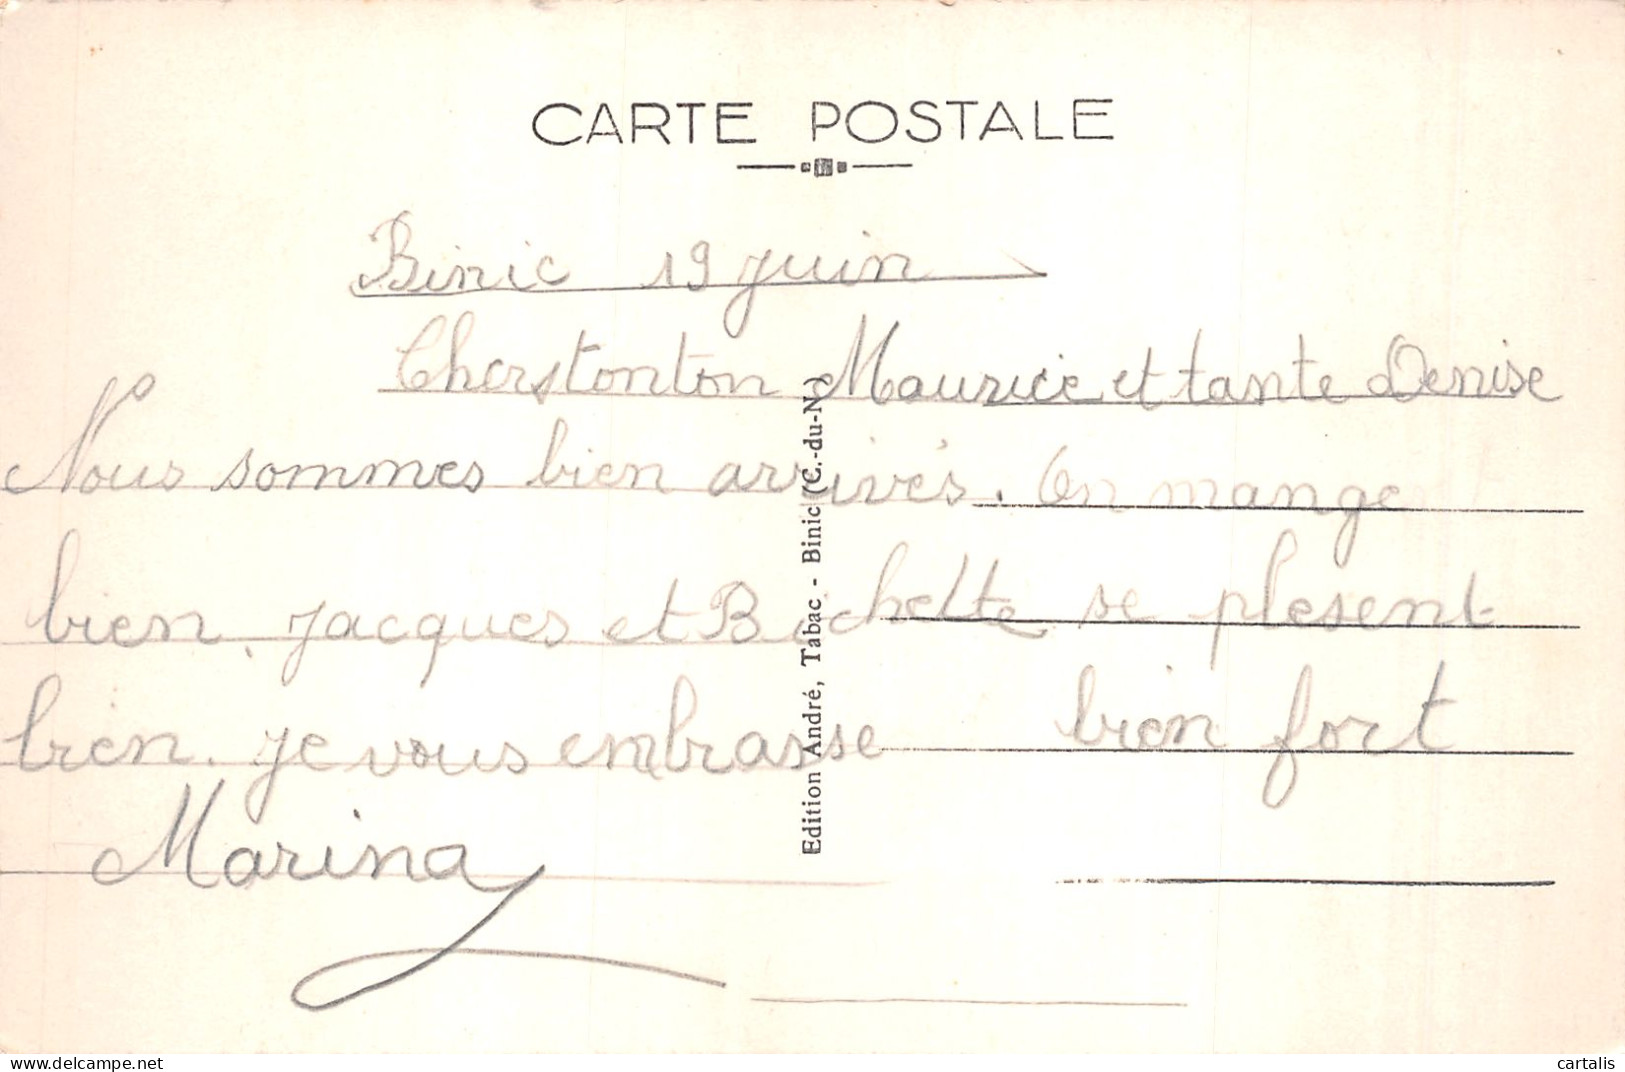 CARTE POSTALE
Binic 19 juin
Cherstonton Maurice et tante Denise
Nous sommes bien arrivés. On mange
bien. Jacques et Bichette se plesent
bien. Je vous embrasse bien fort
Marina
Edition André, Tabac - Binic (C.-du-N.)
cartalis